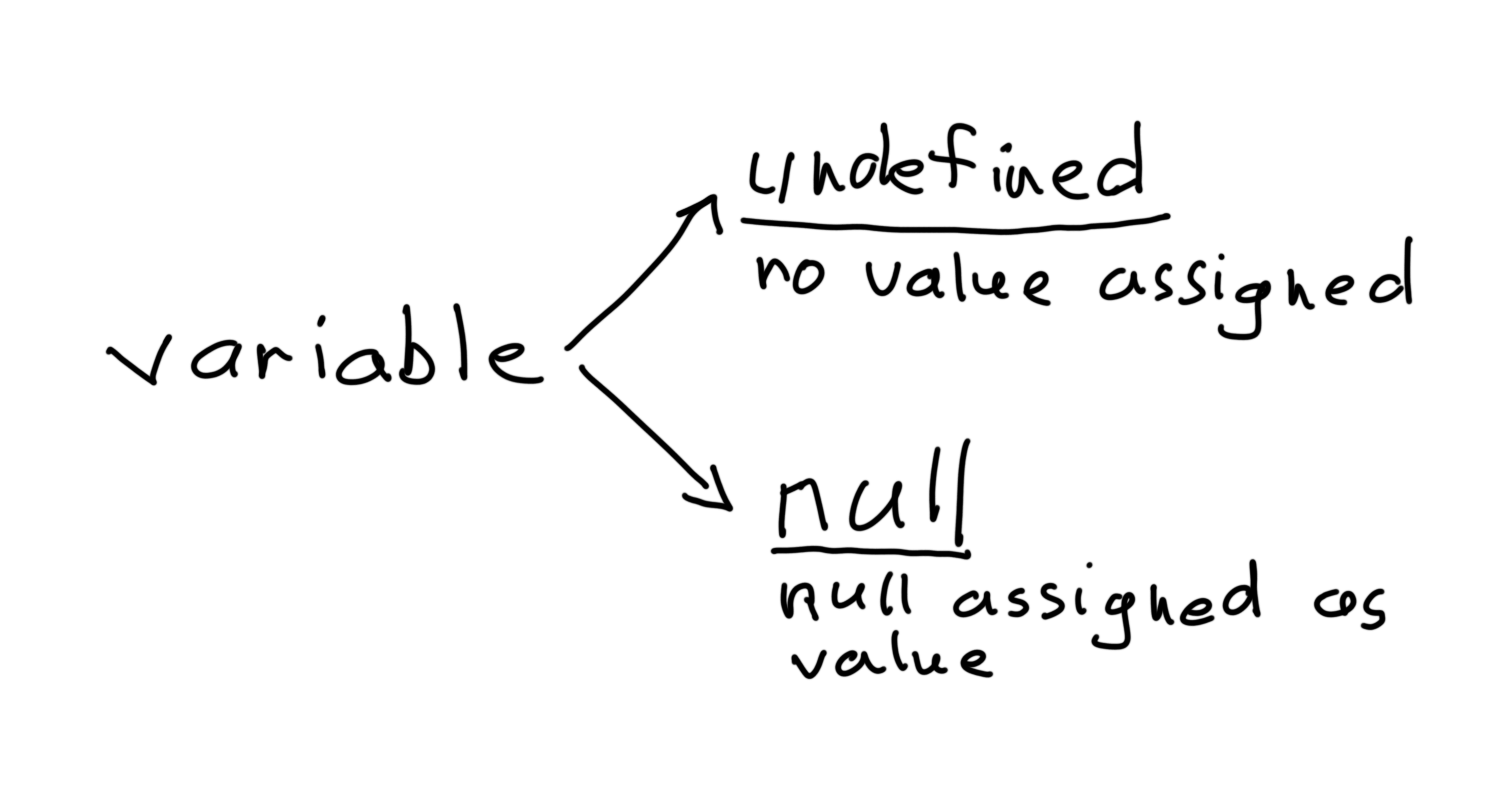 variable
undefined
no value assigned
null
null assigned as
value